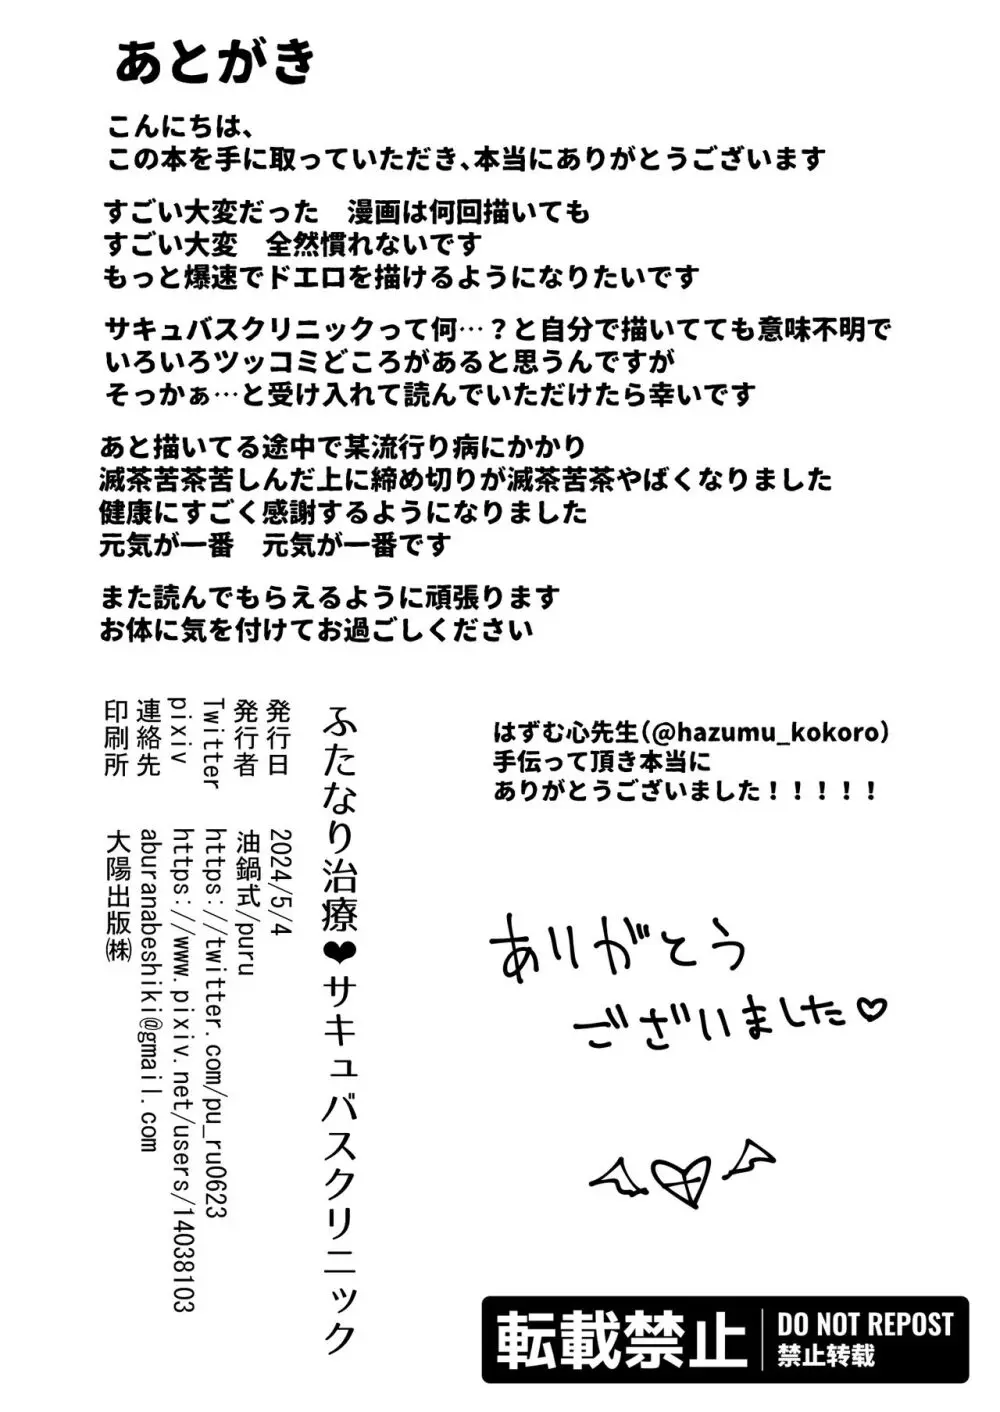 あとがき
こんにちは、
この本を手に取っていただき、本当にありがとうございます
すごい大変だった　漫画は何回描いても
すごい大変　全然慣れないです
もっと爆速でドエロを描けるようになりたいです
サキュバスクリニックって何…？と自分で描いてても意味不明で
いろいろツッコミどころがあると思うんですが
そっかぁ…と受け入れて読んでいただけたら幸いです
あと描いてる途中で某流行り病にかかり
滅茶苦茶苦しんだ上に締め切りが滅茶苦茶やばくなりました
健康にすごく感謝するようになりました
元気が一番　元気が一番です
また読んでもらえるように頑張ります
お体に気を付けてお過ごしください
はずむ心先生（@hazumu_kokoro）
手伝って頂き本当に
ありがとうございました！！！！！
ありがとう
ございました♡
ふたなり治療❤サキュバスクリニック
発行日　2024/5/4
発行者　油鍋式/puru
Twitter　https://twitter.com/pu_ru0623
pixiv　https://www.pixiv.net/users/14038103
連絡先　aburanabeshiki@gmail.com
印刷所　大陽出版㈱
転載禁止
DO NOT REPOST
禁止转载